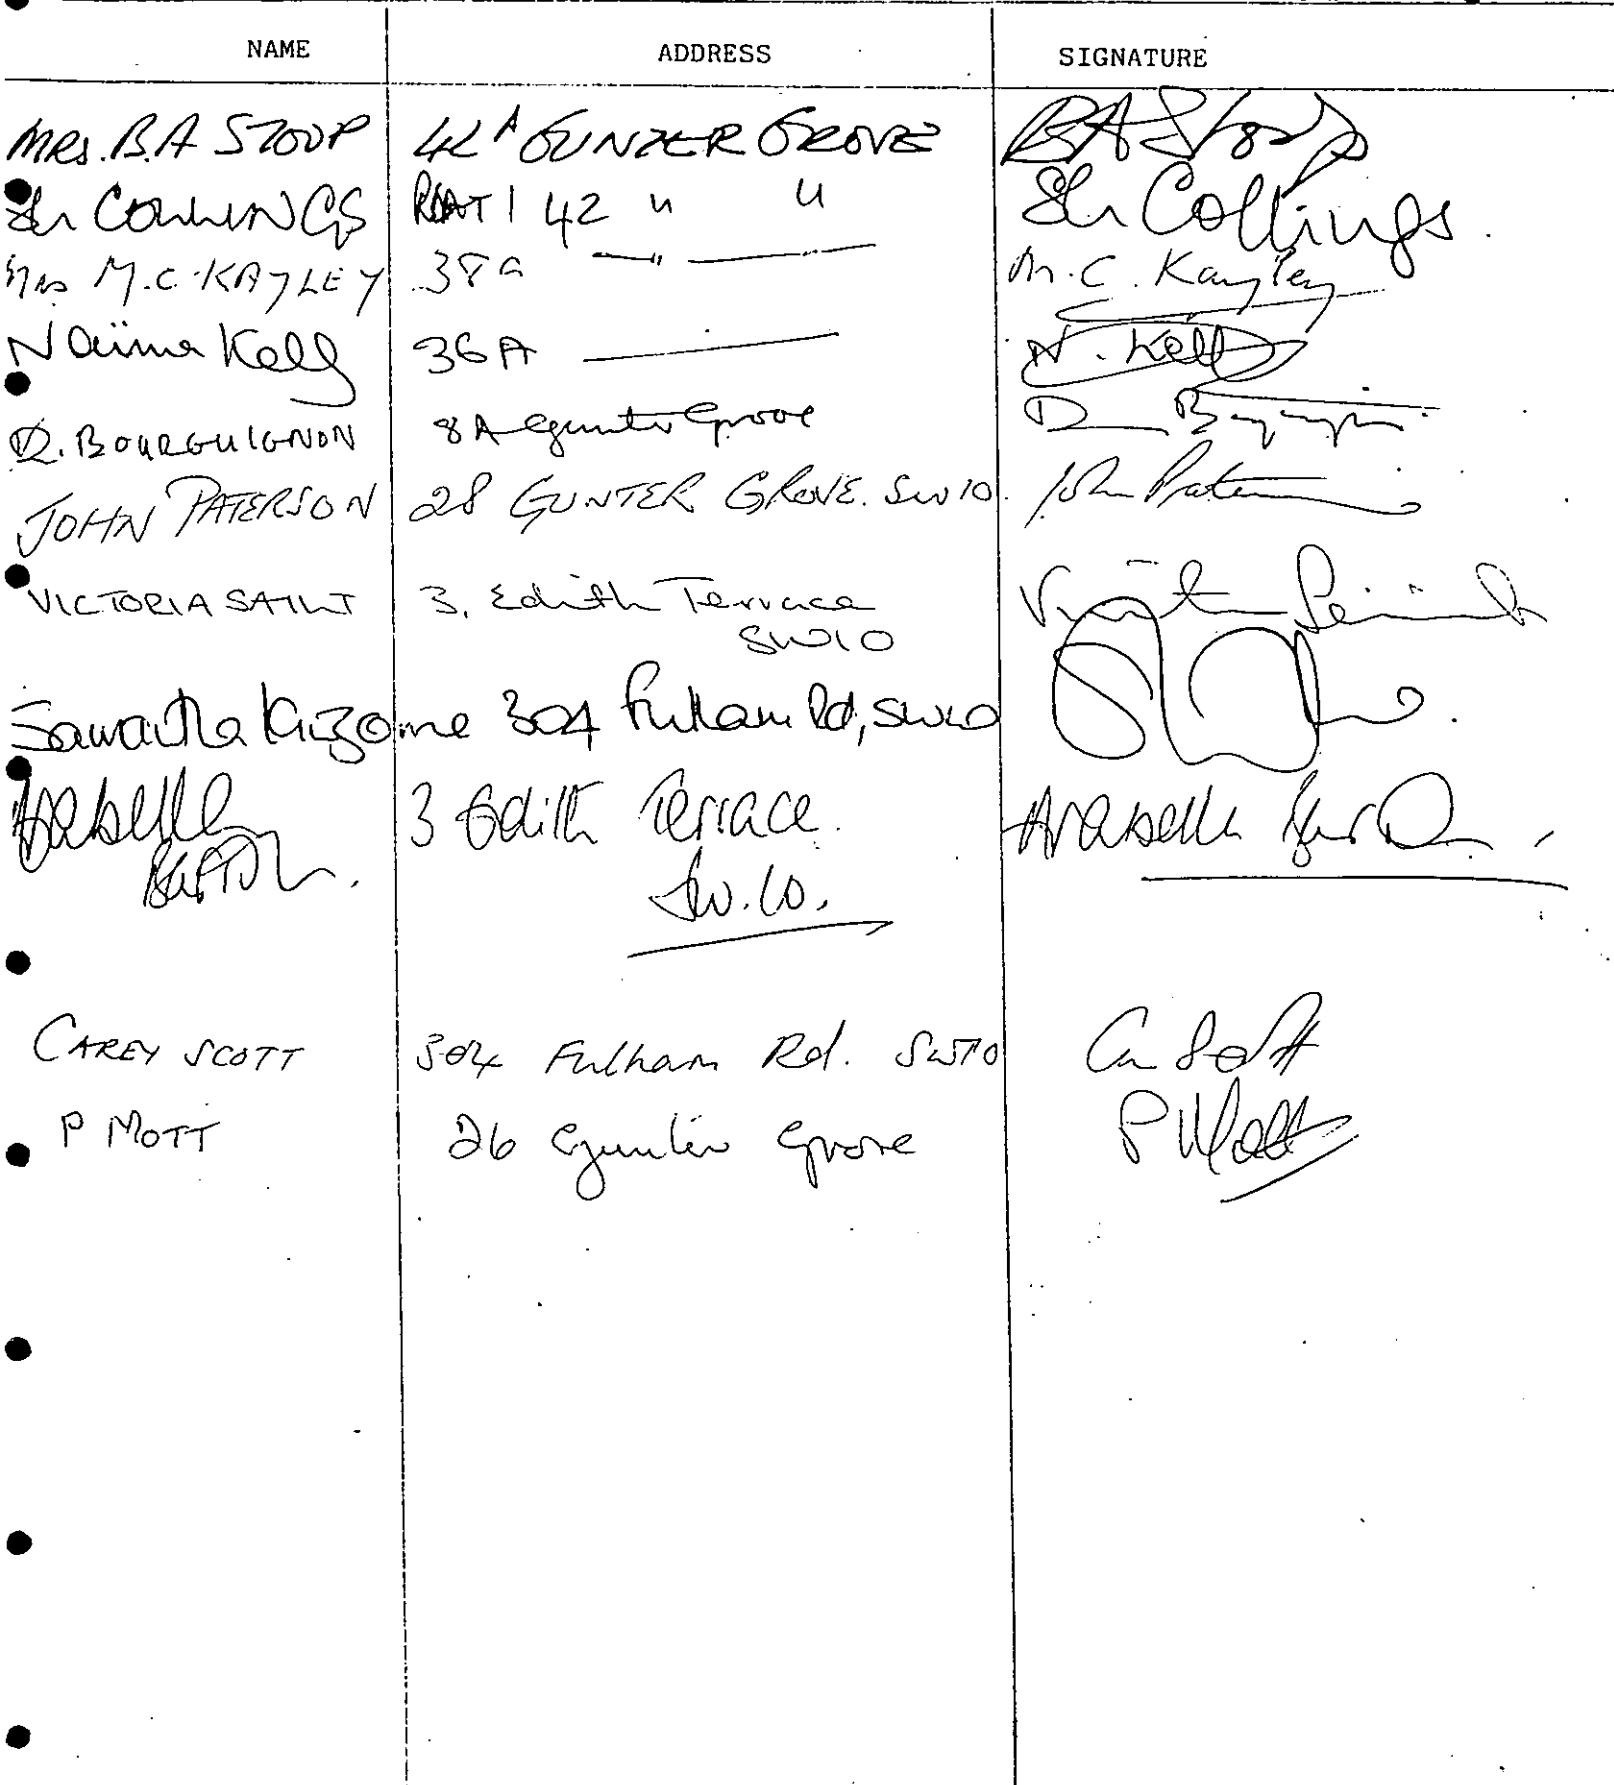 NAME ADDRESS SIGNATURE
MRS. B.A STOOP 42A GUNTER GROVE BA Stoop
COLLINGS FLAT 1 42 " " Collings.
Mrs M.C. KAYLEY 38a —"— M.C. Kayley
Naima Kelly 36A — N. Kelly
D. BOURGUIGNON 8A Gunter Grove D
JOHN PATERSON 28 GUNTER GROVE. SW10. John Paterson
VICTORIA SAINT 3, Edith Terrace
SW10
Samantha 304 Fulham Rd, SW10
Arabella 3 Edith Terrace. Arabella
SW.10.
CAREY SCOTT 304 Fulham Rd. SW10 Scott
P MOTT 26 Gunter Grove P Mott